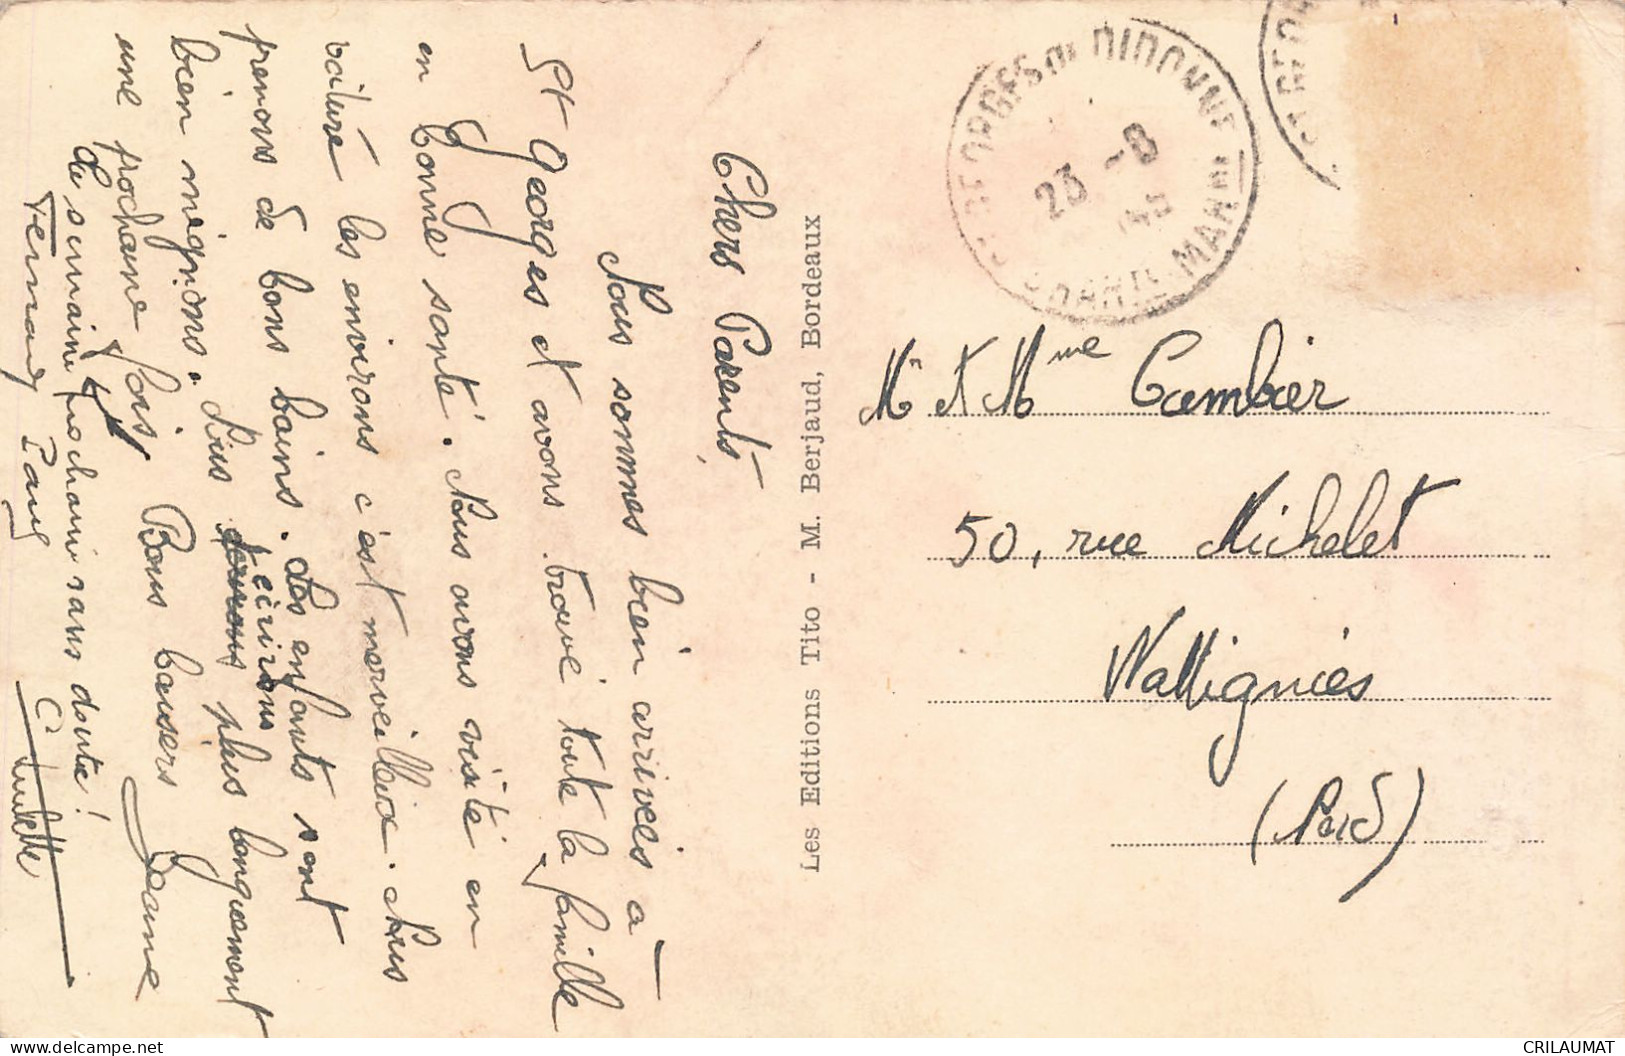 Chers Parents,
Nous sommes bien arrivés à
St Georges et avons trouvé toute la famille
en bonne santé. Nous avons visité en
voiture les environs c'est merveilleux. Nous
prenons de bons bains. Les enfants sont
bien mignons. Nous écrirons plus longuement
une prochaine fois. Bons baisers Jeanne
la semaine prochaine sans doute!
Fernand
Les Editions Tito - M. Berjaud, Bordeaux
ST GEORGES DE DIDONNE
23 -8
CHARTE MARITIME
ST GEOR
Mr & Mme Cambier
50, rue Michelet
Wattignies
(Nord)
CRILAUMAT